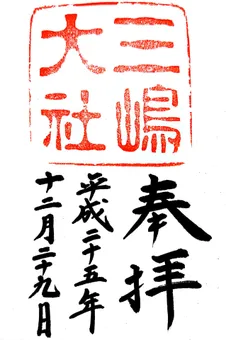 三嶋
大社
奉拝
平成二十五年
十二月二十九日